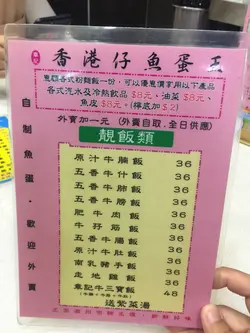 香港仔魚蛋王
惠顧各式粉麵飯一份，可以優惠價享用以下產品
各式汽水及冷熱飲品 $8元，油菜 $8元、
魚皮 $8元。(檸底加 $2)
外賣加一元 (外賣自取，全日供應)
靚飯類
原汁牛腩飯 36
五香牛什飯 36
五香牛肺飯 36
五香牛筋飯 36
肥牛肉飯 36
牛孖筋飯 36
五香牛腸飯 36
原汁牛肚飯 36
南乳豬手飯 36
走地雞飯 36
韋記牛三寶飯 48
送紫菜湯
自制魚蛋·歡迎外賣